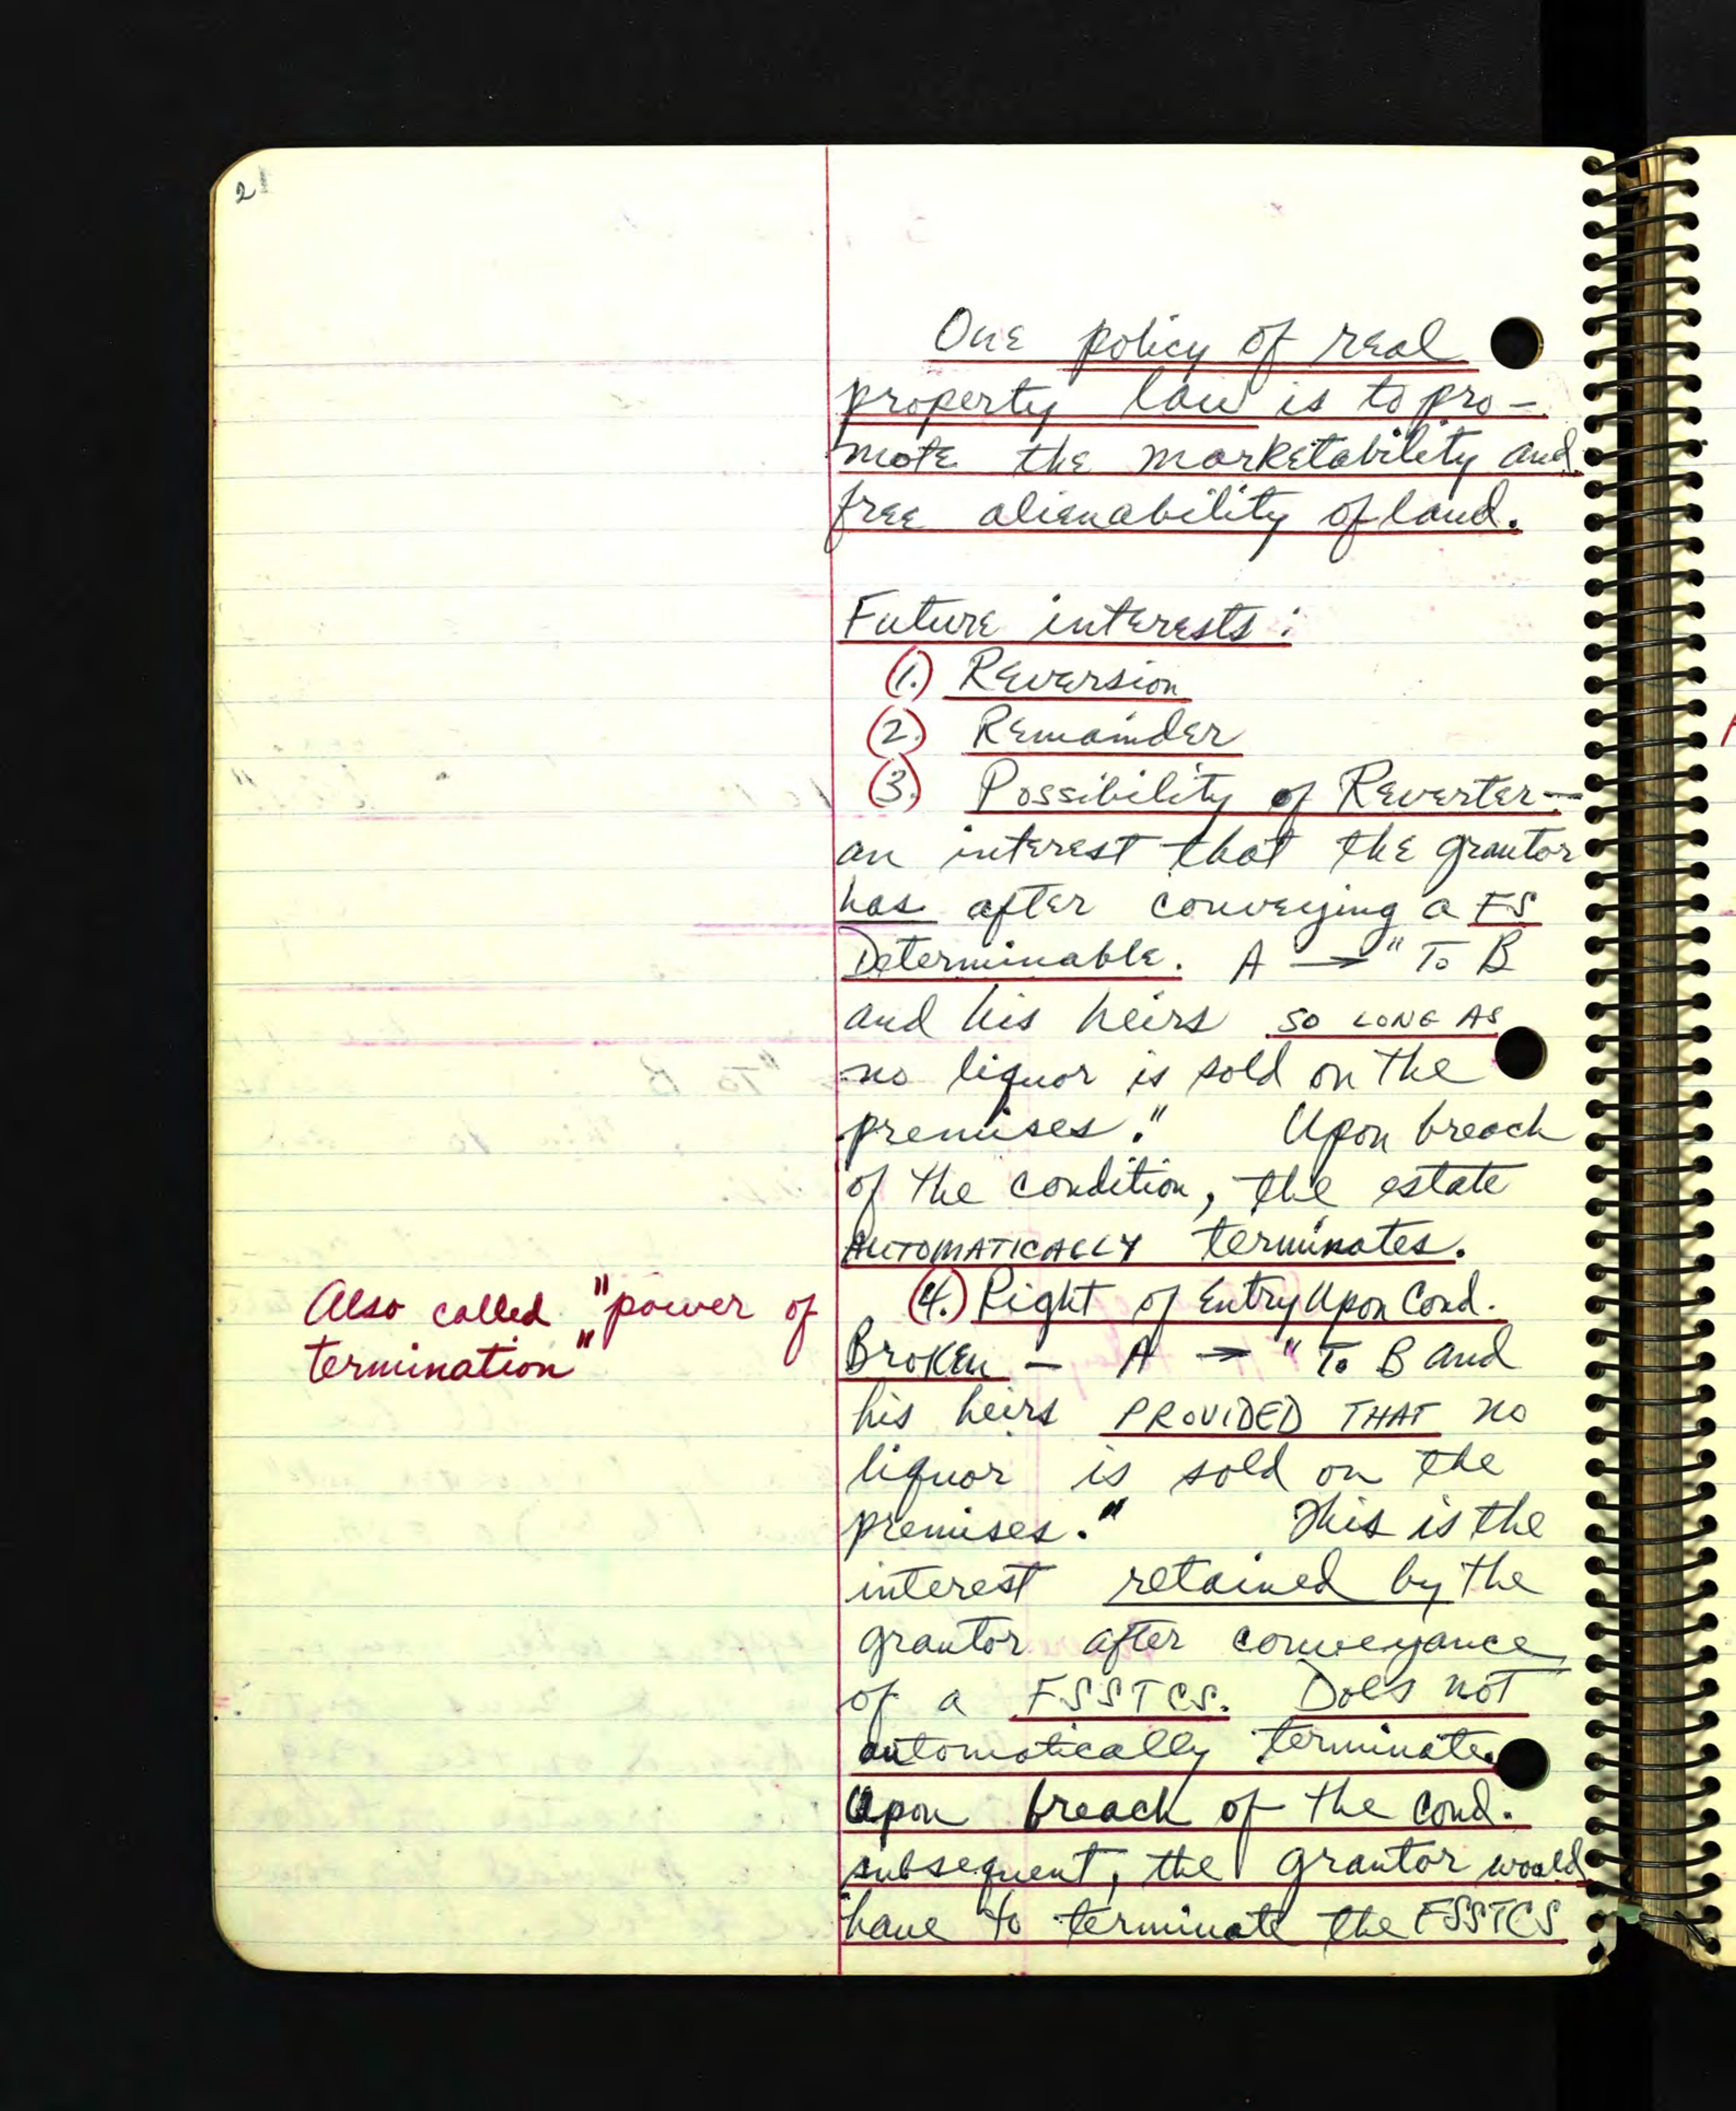 2
One policy of real
property law is to pro-
mote the marketability and
free alienability of land.
Future interests:
(1.) Reversion
(2.) Remainder
(3.) Possibility of Reverter—
an interest that the grantor
has after conveying a FS
Determinable. A → "To B
and his heirs SO LONG AS
no liquor is sold on the
premises." Upon breach
of the condition, the estate
AUTOMATICALLY terminates.
Also called "power of
termination"
(4.) Right of Entry Upon Cond.
Broken — A → "To B and
his heirs PROVIDED THAT no
liquor is sold on the
premises." This is the
interest retained by the
grantor after conveyance
of a FSSTCS. Does not
automatically terminate.
Upon breach of the cond.
subsequent, the grantor would
have to terminate the FSSTCS